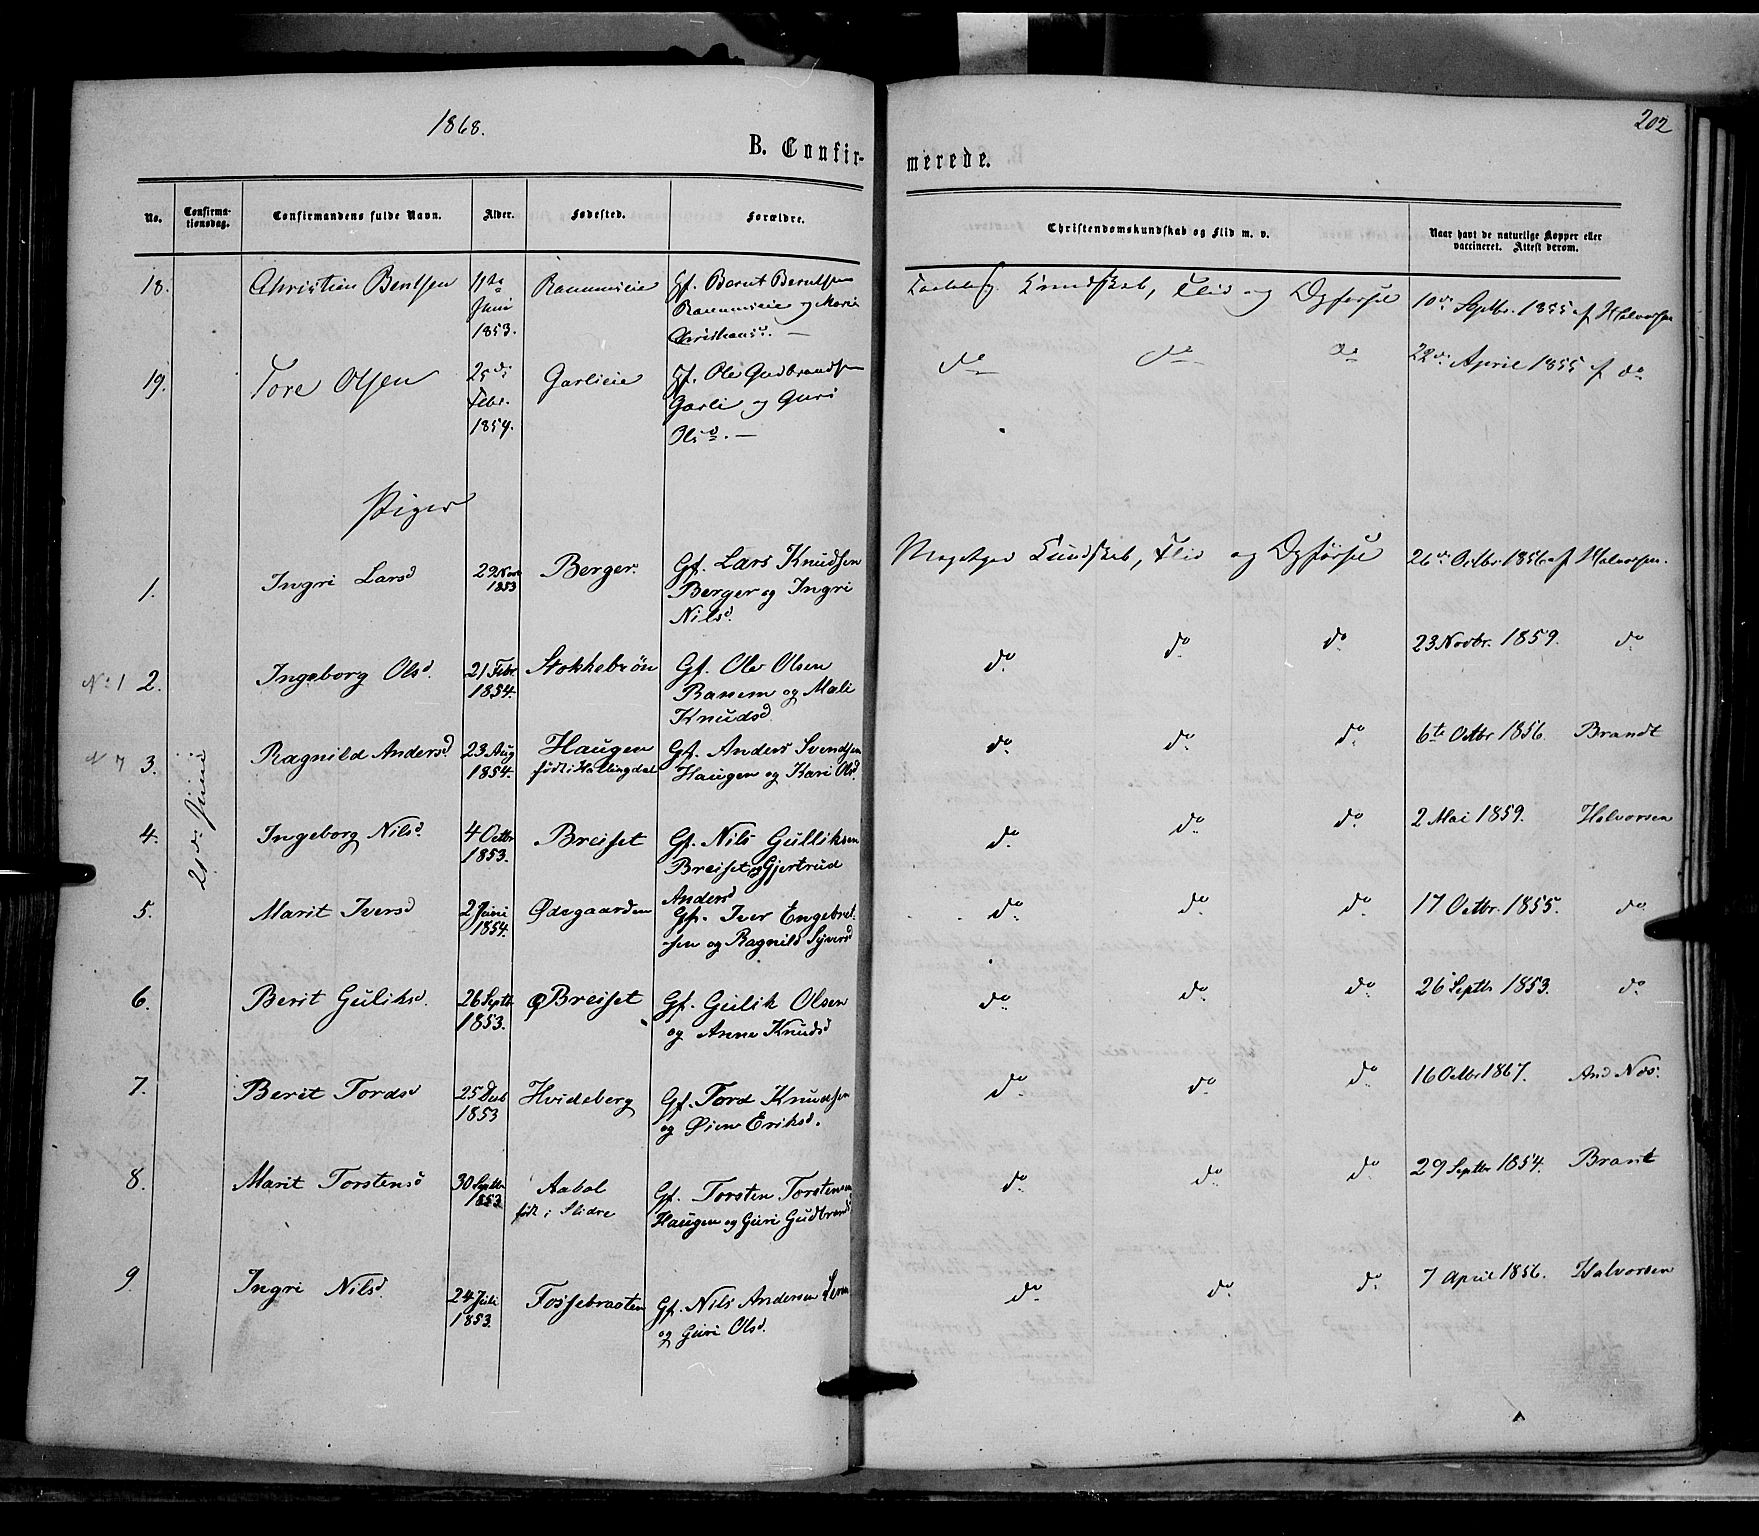 1868.
202
B. Confir-
merede.
No.
Confirma-
tionsdag.
Confirmandens fulde Navn.
Alder.
Fødested.
Forældre.
Christendomskundskab og Flid m. v.
Naar havt de naturlige Kopper eller
vaccineret. Attest derom.
18. Christian Bentsen 11te Juni 1853. Gf. Bernt Berntsen
og Marie
Christiansd. —
Kundskab, Flid og Opførsel 10de Septbr. 1855 af Halvorsen
19. Tore Olsen 25de Febr. 1854. Garlieie Gf. Ole Gudbrandsen
Garli og Guri
Olsd. —
do do do 22de April 1855 af do
Piger
21de Juni
1. Ingri Larsd 29 Novb 1853 Berger. Gf. Lars Knudsen
Berger og Ingri
Nilsd.
Megetgod Kundskab, Flid og Opførsel 26de Octbr. 1856 af Halvorsen.
No 1 2. Ingeborg Olsd. 21 Febr. 1854. Stokkebrøn Gf. Ole Olsen
og Mali
Knudsd.
do do do 23 Novbr. 1859. do
3. Ragnild Andersd. 23 Aug 1854. Haugen
født i Hallingdal
Gf. Anders Svendsen
Haugen og Kari Olsd.
do do do 6te Octbr 1856. Brandt
4. Ingeborg Nilsd. 4 Octbr 1853. Breiset Gf. Nils Gulliksen
Breiset og Gjertrud
Andersd
do do do 2 Mai 1859. Halvorsen
5. Marit Iversd 2 Juni 1854. Ødegaarden Gf. Iver Engebret-
sen og Ragnild Syversd
do do do 17 Octbr. 1855. do
6. Berit Guliksd. 26 Septb. 1853. Ø Breiset Gf. Gulik Olsen
og Anne Knudsd
do do do 26 Septbr 1853. do
7. Berit Tordsd 25 Decb 1853 Hvideberg Gf. Tord Knudsen
og Eriksd.
do do do 16 Octbr 1867. And Næs.
8. Marit Torstensd 30 Septbr 1853. Aabol
født i Slidre
Gf. Torsten Torstensen
Haugen og Guri Gudbrandsd
do do do 29 Septbr 1854. Brant
9. Ingri Nilsd. 24 Juli 1853. Fossebraaten Gf. Nils Andersen
og Guri Olsd.
do do do 7 April 1856. Halvorsen